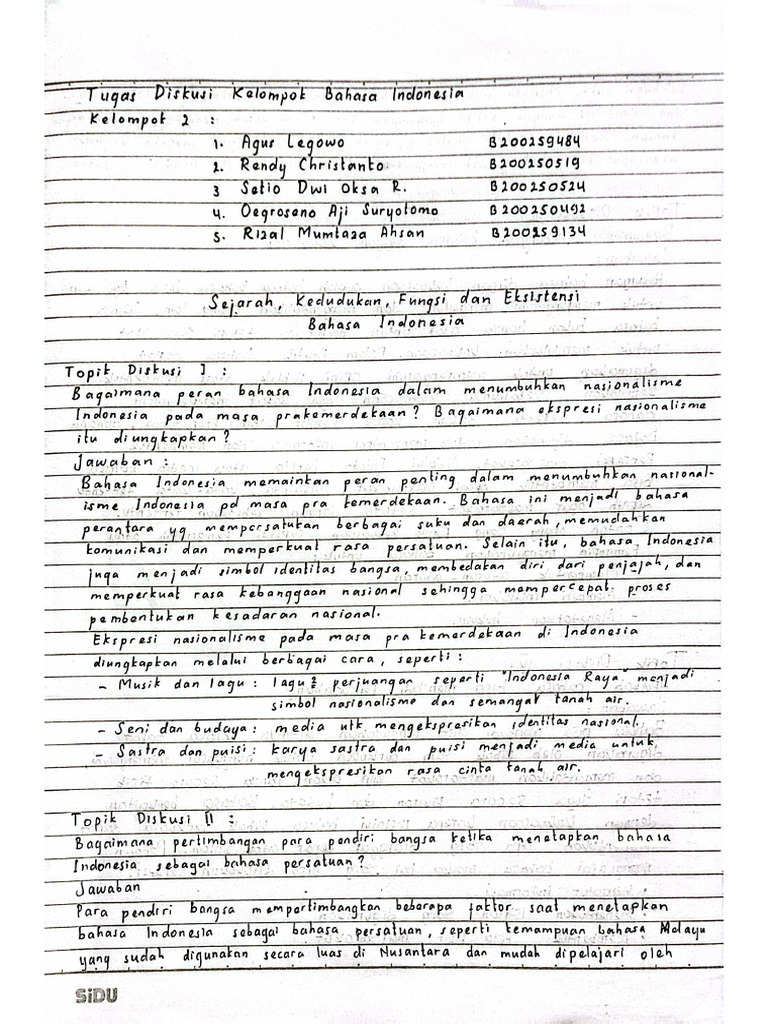 Tugas Diskusi Kelompok Bahasa Indonesia
Kelompok 2 :
1. Agus Legowo B200259484
2. Rendy Christanto B200250519
3 Setio Dwi Oksa R. B200250524
4. Oegroseno Aji Suryotomo B200250492
5. Rizal Mumtaza Ahsan B200259134
Sejarah, Kedudukan, Fungsi dan Eksistensi
Bahasa Indonesia
Topik Diskusi I :
Bagaimana peran bahasa Indonesia dalam menumbuhkan nasionalisme
Indonesia pada masa prakemerdekaan? Bagaimana ekspresi nasionalisme
itu diungkapkan?
Jawaban :
Bahasa Indonesia memainkan peran penting dalam menumbuhkan nasional-
isme Indonesia pd masa pra kemerdekaan. Bahasa ini menjadi bahasa
perantara yg mempersatukan berbagai suku dan daerah, memudahkan
komunikasi dan memperkuat rasa persatuan. Selain itu, bahasa Indonesia
juga menjadi simbol identitas bangsa, membedakan diri dari penjajah, dan
memperkuat rasa kebanggaan nasional sehingga mempercepat proses
pembentukan kesadaran nasional.
Ekspresi nasionalisme pada masa pra kemerdekaan di Indonesia
diungkapkan melalui berbagai cara, seperti :
- Musik dan lagu : lagu2 perjuangan seperti "Indonesia Raya" menjadi
simbol nasionalisme dan semangat tanah air.
- Seni dan budaya : media utk mengekspresikan identitas nasional.
- Sastra dan puisi : karya sastra dan puisi menjadi media untuk
mengekspresikan rasa cinta tanah air.
Topik Diskusi II :
Bagaimana pertimbangan para pendiri bangsa ketika menetapkan bahasa
Indonesia sebagai bahasa persatuan?
Jawaban
Para pendiri bangsa mempertimbangkan beberapa faktor saat menetapkan
bahasa Indonesia sebagai bahasa persatuan, seperti kemampuan bahasa Melayu
yang sudah digunakan secara luas di Nusantara dan mudah dipelajari oleh
SiDU